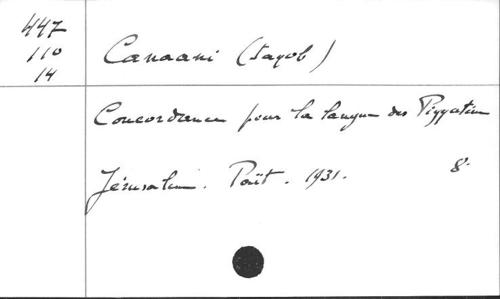 447
110
14
Canaani (Jacob)
Concordance pour la langue des Piyyutim
Jérusalem. 1931. 8°